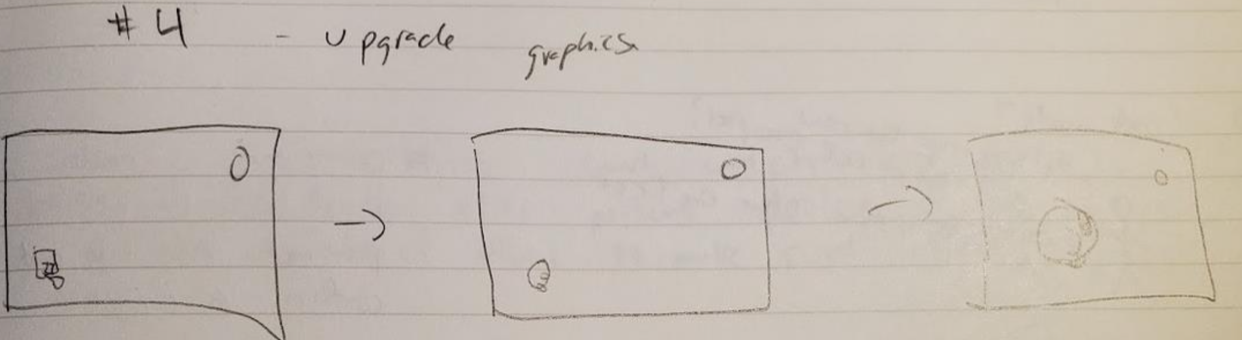 #4 - Upgrade graphics